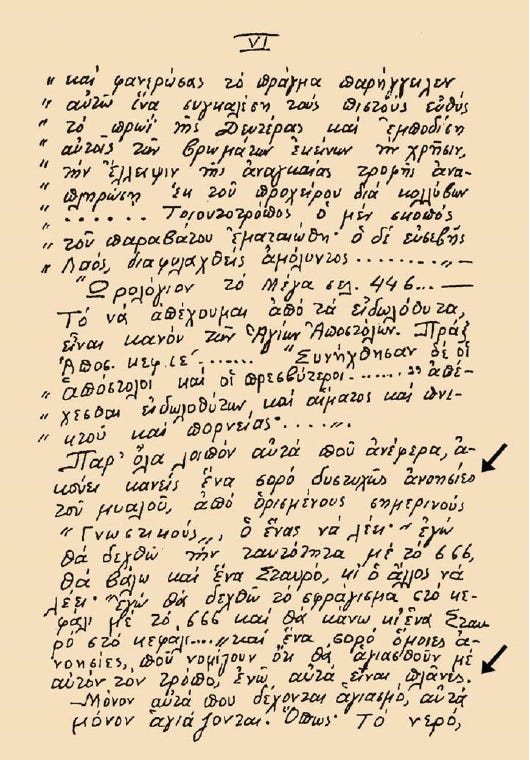 VI
" καί φανερώσας τό πρᾶγμα παρήγγειλεν
" αὐτῶ ἵνα συγκαλέση τούς πιστούς εὐθύς
" τό πρωΐ τῆς Δευτέρας καί ἐμποδίση
" αὐτοῖς τῶν βρωμάτων ἐκείνων τήν χρῆσιν,
" τήν ἔλλειψιν τῆς ἀναγκαίας τροφῆς ἀνα-
" πληρώση ἐκ τοῦ προχείρου διά κολλύβων
" . . . . . . Τοιουτοτρόπως ὁ μέν σκοπός
" τοῦ παραβάτου ἐματαιώθη· ὁ δέ εὐσεβής
" Λαός, διαφυλαχθείς ἀμόλυντος ........„ —
"Ὡρολόγιον τό Μέγα σελ. 446... —
Τό νά ἀπέχουμαι ἀπό τά εἰδωλόθυτα,
εἶναι κανόν τῶν Ἁγίων Ἀποστόλων. Πράξ
Ἀποσ. κεφ. ιε΄....... "Συνήχθησαν δέ οἱ
" ἀπόστολοι καί οἱ πρεσβύτεροι ......" ἀπέ-
" χεσθαι εἰδωλοθύτων καί αἵματος καί πνι-
" κτοῦ καί πορνείας· .... „.
Παρ' ὅλα λοιπόν αὐτά πού ἀνέφερα, ἀ-
κούει κανείς ἕνα σορό δυστυχῶς ἀνοησίες
τοῦ μυαλοῦ, ἀπό ὁρισμένους σημερινούς
" Γνωστικούς„, ὁ ἕνας νά λέει· " ἐγώ
θά δεχθῶ τήν ταυτότητα μέ τό 666,
θά βάλω καί ἕνα Σταυρό, κι ὁ ἄλλος νά
λέει· "ἐγώ θά δεχθῶ τό σφράγισμα στό κε-
φάλι μέ τό 666 καί θά κάνω κι' ἕνα Σταυ-
ρό στό κεφάλι....„ καί ἕνα σορό ὅμοιες ἀ-
νοησίες, πού νομίζουν ὅτι θά ἁγιασθοῦν μέ
αὐτόν τόν τρόπο, ἐνῶ αὐτά εἶναι πλάνες.
—Μόνον αὐτά που δέχονται ἁγιασμό, αὐτά
μόνον ἁγιάζονται. Ὅπως Τό νερό,